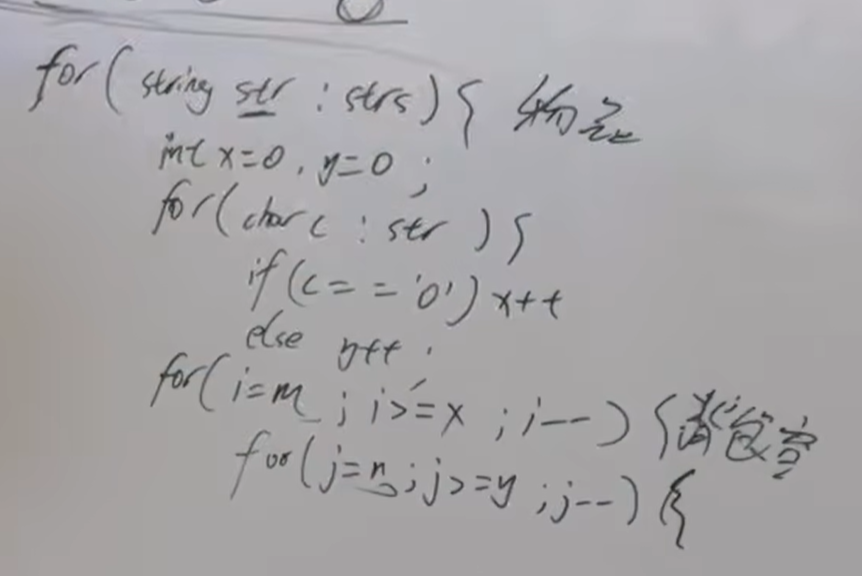 for(string str : strs){ 物品
int x=0, y=0;
for(char c : str){
if(c=='0')x++
else y++;
for(i=m; i>=x; i--){背包容
for(j=n;j>=y;j--){